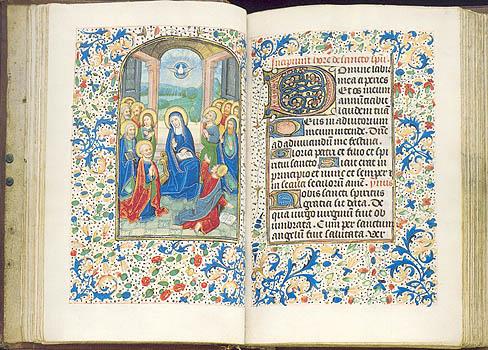 Incipiunt hore de sancto spu.
Domine labia
mea aperies
Et os meum
annuciabit
laudem tuam
Deus in adiutorium
meum intende. Dne
ad adiuvandum me festina
Gloria patri et filio et spi
ritui sancto Sicut erat in
principio et nunc et semper et
in secula seculorum ame. ymnus
Nobis sancti spiritus
gratia sit data. De
qua virgo virginum fuit ob
umbrata. Cum per sanctum
angelum fuit salutata. Ver